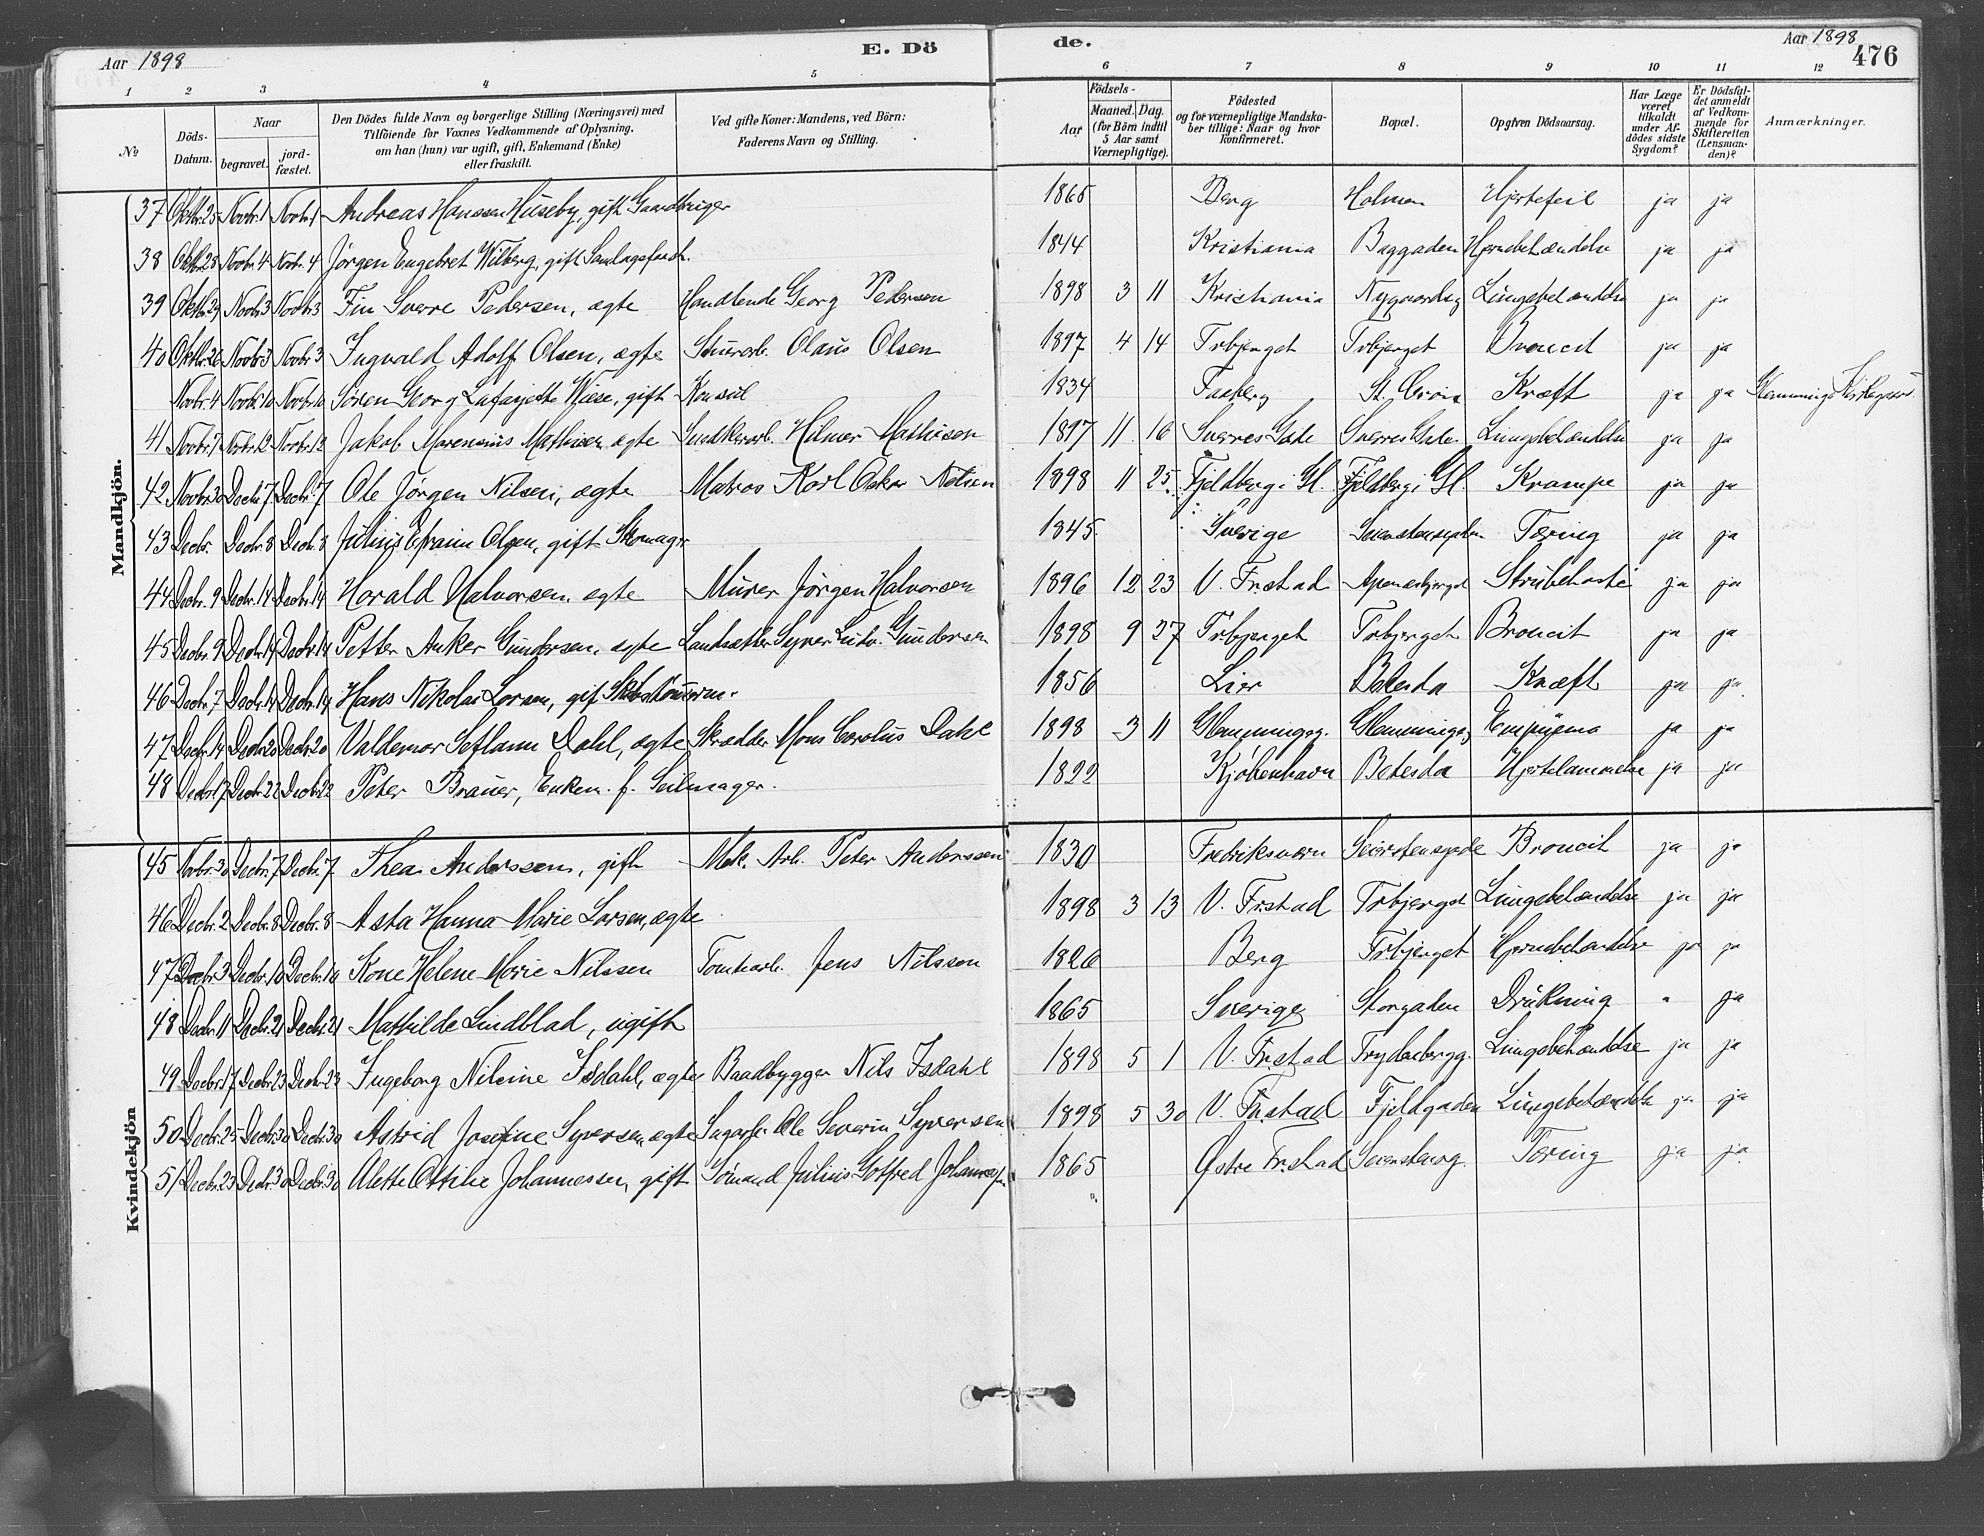 Aar 1898 E. Dö de. Aar 1898 476
1 2 3 4 5 6 7 8 9 10 11 12
No
Döds-Datum.
Naar begravet. jordfæstet.
Den Dödes fulde Navn og borgerlige Stilling (Næringsvei) med Tilföiende for Voxnes Vedkommende af Oplysning, om han (hun) var ugift, gift, Enkemand (Enke) eller fraskilt.
Ved gifte Koner: Mandens, ved Börn: Faderens Navn og Stilling.
Födsels-
Aar Maaned. Dag. (for Börn indtil 5 Aar samt Værnepligtige).
Födested og for værnepligtige Mandskaber tillige: Naar og hvor konfirmeret.
Bopæl.
Opgiven Dödsaarsag.
Har Læge været tilkaldt under Afdödes sidste Sygdom?
Er Dödsfaldet anmeldt af Vedkommende for Skifteretten (Lensmanden)?
Anmærkninger.
Mandkjön.
37 Oktbr. 25 Novbr. 1 Novbr. 1 Andreas Hanssen Huseby, gift 1865 Berg Holmen Hjertefeil ja ja
38 Oktbr. 28 Novbr. 4 Novbr. 4 Jørgen Engebret Wilberg, gift 1844 Kristiania Baggaden Hjernebetændelse ja ja
39 Oktbr. 29 Novbr. 3 Novbr. 3 Fin Sverre Pedersen, ægte Handlende Georg Pedersen 1898 3 11 Kristiania Nygaardsg Lungebetændelse ja ja
40 Oktbr. 26 Novbr. 3 Novbr. 3 Ingvald Adolf Olsen, ægte Olaus Olsen 1897 4 14 Trbjerget Trbjerget Broncit ja ja
Novbr. 4 Novbr. 10 Novbr. 10 Søren Georg Lafayette Wiese, gift Konsul 1834 Faaberg St. Croix Kræft ja ja Glemminge Kirkegaard
41 Novbr. 7 Novbr. 12 Novbr. 12 Jakob Marensius Mathisen ægte Snedkerarb. Hilmer Mathisen 1897 11 16 Sverres Gade Sverres Gade Lungebetændelse ja ja
42 Novbr. 30 Decbr. 7 Decbr. 7 Ole Jørgen Nilsen, ægte Matros Karl Oskar Nilsen 1898 11 25 Fjeldberg i Gl. Fjeldberg i Gl. Krampe ja ja
43 Decbr. Decbr. 8 Decbr. 8 Julius Efraim Olsen, gift Skomager 1845 Sverige Tæring ja ja
44 Decbr. 9 Decbr. 14 Decbr. 14 Harald Halvorsen, ægte Murer Jørgen Halvorsen 1896 12 23 V. Fr.stad Apenæsbjerget Strubehoste ja ja
45 Decbr. 9 Decbr. 14 Decbr. 14 Petter Anker Gundersen, ægte Syver Gundersen 1898 9 27 Trbjerget Trbjerget Broncit ja ja
46 Decbr. 7 Decbr. 14 Decbr. 14 Hans Nikolai Larsen, gift Skibstømmerm. 1856 Lier Betesda Kræft ja ja
47 Decbr. 14 Decbr. 20 Decbr. 20 Valdemar Dahl, ægte Skrædder Mons Carolus Dahl 1898 3 11 Glemmingeg. Glemmingeg. Empyema ja ja
48 Decbr. 17 Decbr. 22 Decbr. 22 Peter Brauer, Enkem. f. Seilmager. 1822 Kjøbenhavn Betesda Hjertelammelse ja ja
Kvindekjön
45 Novbr. 30 Decbr. 7 Decbr. 7 Thea Anderssen, gift Mek. Arb. Peter Anderssen 1830 Fredriksværn Seierstensgade Broncit ja ja
46 Decbr. 2 Decbr. 8 Decbr. 8 Asta Hanna Marie Larsen, ægte 1898 3 13 V. Fr.stad Trbjerget Lungebetændelse ja ja
47 Decbr. 3 Decbr. 10 Decbr. 10 Kone Helene Marie Nilssen Tomtearb. Jens Nilssen 1826 Berg Trbjerget Hjernebetændelse ja ja
48 Decbr. 11 Decbr. 21 Decbr. 21 Mathilde Lindblad, ugift 1865 Sverige Storgaden Drukning " ja
49 Decbr. 17 Decbr. 23 Decbr. 23 Ingeborg Nilsine Isdahl, ægte Baadbygger Nils Isdahl 1898 5 1 V. Fr.stad Lungebetændelse ja ja
50 Decbr. 25 Decbr. 30 Decbr. 30 Astrid Josefine Syversen, ægte Sagarb. Ole Severin Syversen 1898 5 30 V. Fr.stad Fjeldgaden Lungebetændelse ja ja
51 Decbr. 23 Decbr. 30 Decbr. 30 Alette Ottilie Johannessen, gift Sømand Julius Gotfred Johannessen 1865 Østre Fr.stad Tæring ja ja